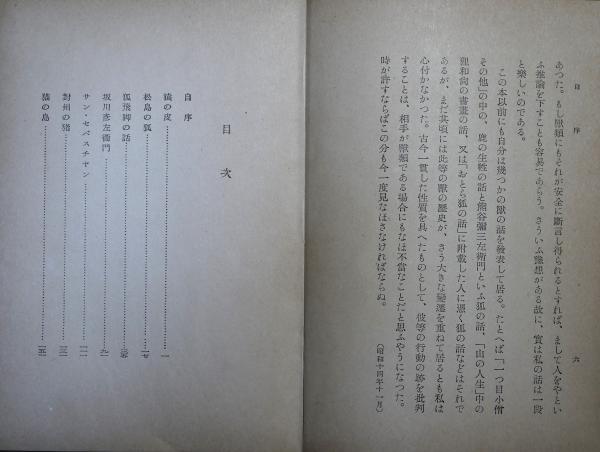 自序
六
あつた。もし獸類にもそれが安全に斷言し得られるとすれば、まして人をやとい
ふ推論を下すことも容易であらう。さういふ豫想がある故に、實は私の話は一段
と樂しいのである。
この本以前にも自分は幾つかの獸の話を發表して居る。たとへば「一つ目小僧
その他」の中の、鹿の生牲の話と熊谷彌三左衞門といふ狐の話、「山の人生」中の
狸和尚の書畫の話、又は「おとら狐の話」に附載した人に憑く狐の話などはそれで
あるが、まだ其頃には此等の獸の歷史が、さう大きな變遷を重ねて居るとも私は
心付かなかつた。古今一貫した性質を具へたものとして、彼等の行動の跡を批判
することは、相手が獸類である場合にもなほ不當なことだと思ふやうになつた。
時が許すならばこの分も今一度見なほさなければならぬ。
(昭和十四年十一月)
目次
自序
猿の皮……一
松島の狐……
狐飛脚の話……
坂川彦左衞門……
サン・セバスチヤン……
對州の猪……
猫の島……